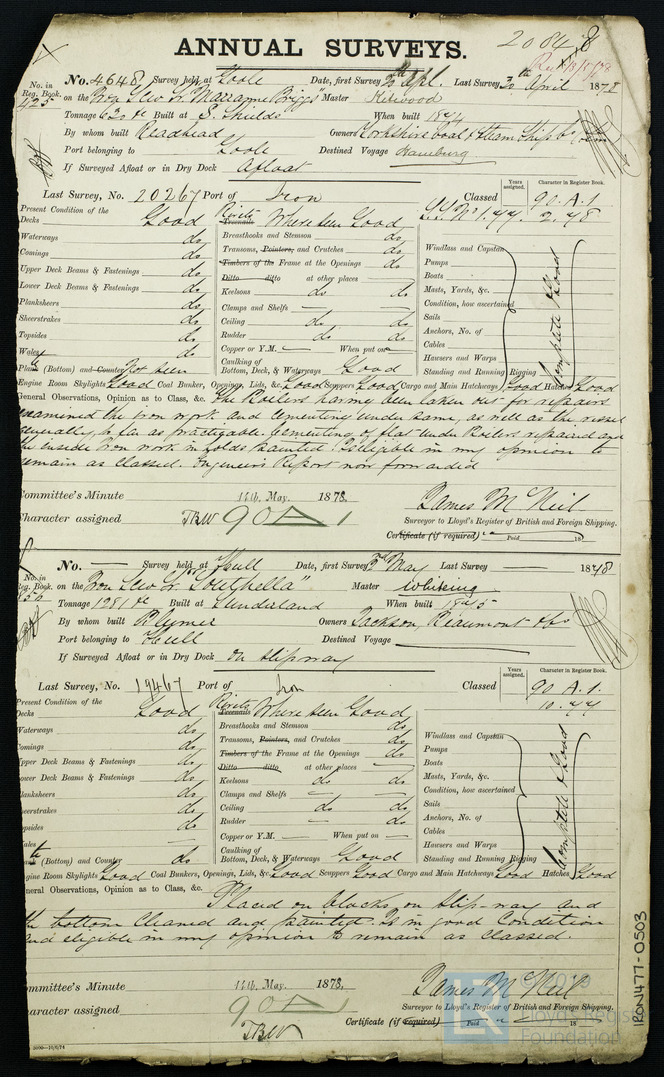 ANNUAL SURVEYS.
No. in Reg. Book.
425
No. 4648 Survey held at Goole Date, first Survey Apl. Last Survey 30th April 1878
on the Iron Scw Sr. "Marianne Briggs" Master
Tonnage 630 Built at S. Shields When built
By whom built Readhead Owners Yorkshire Coal & Steam Ship
Port belonging to Goole Destined Voyage Hamburg
If Surveyed Afloat or in Dry Dock Afloat
Last Survey, No. 20267 Port of Iron Classed
Years assigned.
Character in Register Book.
90 A. 1
Present Condition of the
Decks Good
Waterways do
Comings do
Upper Deck Beams & Fastenings do
Lower Deck Beams & Fastenings do
Planksheers do
Sheerstrakes do
Topsides do
Wales do
(Bottom) and Counter Not been
Rivets Treenails Where seen Good
Breasthooks and Stemson do
Transoms, Pointers, and Crutches do
Timbers of the Frame at the Openings do
Ditto ditto at other places
Keelsons do do
Clamps and Shelfs
Ceiling do do
Rudder do do
Copper or Y.M. When put on
Caulking of
Bottom, Deck, & Waterways Good
Windlass and Capstan
Pumps
Boats
Masts, Yards, &c.
Condition, how ascertained
Sails
Anchors, No. of
Cables
Hawsers and Warps
Standing and Running Rigging
Complete & Good
Engine Room Skylights Good Coal Bunker, Openings, Lids, &c. Good Scuppers Good Cargo and Main Hatchways Good Hatches Good
General Observations, Opinion as to Class, &c. The Boilers having been taken out for repairs
examined the iron work and cementing under same, as well as the vessel
generally, so far as practicable. Cementing of flat under Boilers repaired and
the inside iron work in holds painted. Is eligible in my opinion to
remain as classed. Engineers Report now forwarded
Committee's Minute 14th May. 1878.
Character assigned TBW 90 A 1
James McNeil
Surveyor to Lloyd's Register of British and Foreign Shipping.
Certificate (if required) Paid 18
No. in Reg. Book.
No. — Survey held at Hull Date, first Survey 3rd May Last Survey — 1878
on the Iron Scw Sr. "Southella" Master Whiting
Tonnage 1281 Built at Sunderland When built 1875
By whom built R. Owners Jackson, Beaumont & Co
Port belonging to Hull Destined Voyage
If Surveyed Afloat or in Dry Dock On slipway
Last Survey, No. 19467 Port of Iron Classed
Years assigned.
Character in Register Book.
90 A. 1.
10. 77
Present Condition of the
Decks Good
Waterways do
Comings do
Upper Deck Beams & Fastenings do
Lower Deck Beams & Fastenings do
Planksheers do
Sheerstrakes do
Topsides do
Wales
(Bottom) and Counter do
Rivets Treenails Where seen Good
Breasthooks and Stemson do
Transoms, Pointers, and Crutches do
Timbers of the Frame at the Openings do
Ditto ditto at other places
Keelsons do do
Clamps and Shelfs
Ceiling do do
Rudder
Copper or Y.M. When put on
Caulking of
Bottom, Deck, & Waterways Good
Windlass and Capstan
Pumps
Boats
Masts, Yards, &c.
Condition, how ascertained
Sails
Anchors, No. of
Cables
Hawsers and Warps
Standing and Running Rigging
Complete & Good
Engine Room Skylights Good Coal Bunkers, Openings, Lids, &c. Good Scuppers Good Cargo and Main Hatchways Good Hatches Good
General Observations, Opinion as to Class, &c. Placed on blocks on slip-way and
the bottom cleaned and painted. Is in good condition
and eligible in my opinion to remain as classed.
Committee's Minute 14th May. 1878.
Character assigned 90 A
TBW
James McNeil
Surveyor to Lloyd's Register of British and Foreign Shipping.
Certificate (if required) Paid 18
IRON477-0503
Lloyd's Register
Foundation